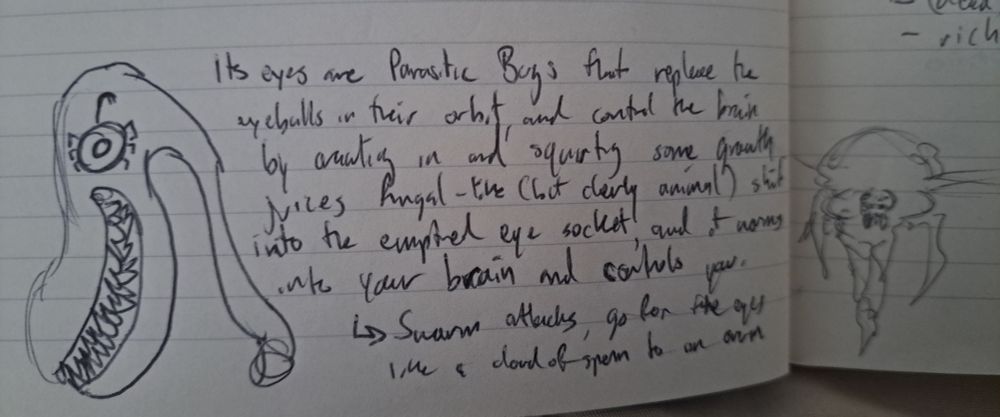 Its eyes are Parasitic Bugs that replace the
eyeballs in their orbit, and control the brain
by in and squirting some growth
juices fungal-like (but clearly animal) shit
into the emptied eye socket, and it worms
into your brain and controls you.
↳ Swarm attacks, go for the eyes
like a cloud of sperm to an ovum
- rich